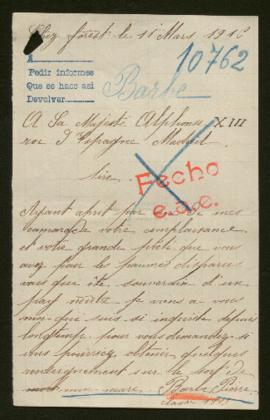 Chez forest le 11 Mars 1916
10762
A
Pedir informes
Que se hace asi
Devolver
Barbe
A Sa Majesté Alphonse XIII
roi d'Espagne Madrid
Sire
Fecho
Ayant aprit par de mes
camarade votre complaisance
et votre grande pitié que vous
avez pour les pauvres disparus
avec que ite, souverain d'un
pays neutre je viens a vous
que suis si inquiete depuis
longtemps pour vous demander si
vous pourriez obtenir quelques
renseignement sur le sort de
mon mari Barbe Pierre
classe